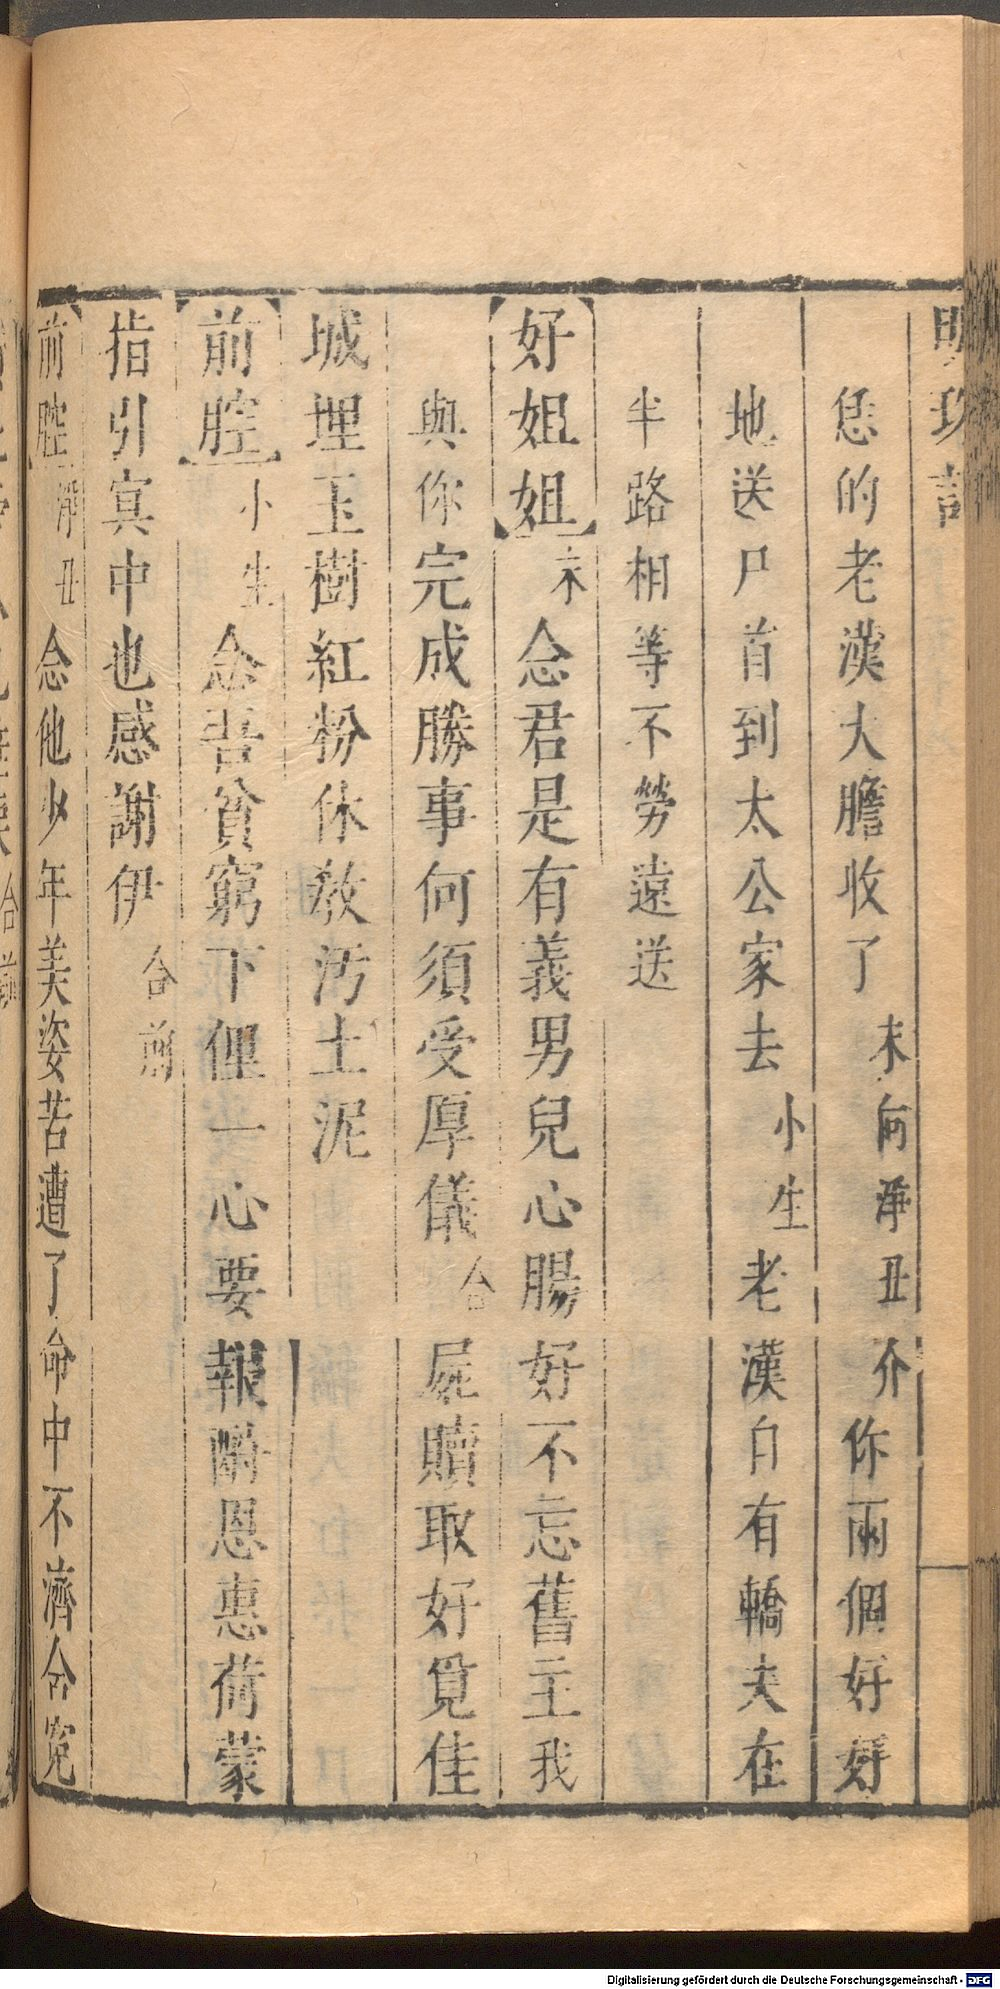 明珠記
恁的老漢大膽收了末向淨丑介你兩個好好
地送尸首到太公家去小生老漢自有轎夫在
半路相等不勞遠送
【好姐姐】末念君是有義男兒心腸好不忘舊主我
與你完成勝事何須受厚儀合屍贖取好覓佳
城埋玉樹紅粉休教污土泥
【前腔】小生念吾貧窮下俚一心要報酬恩惠荷蒙
指引冥中也感謝伊合前
【前腔】淨丑念他少年美姿苦遭了命中不濟含寃
Digitalisierung gefördert durch die Deutsche Forschungsgemeinschaft - DFG